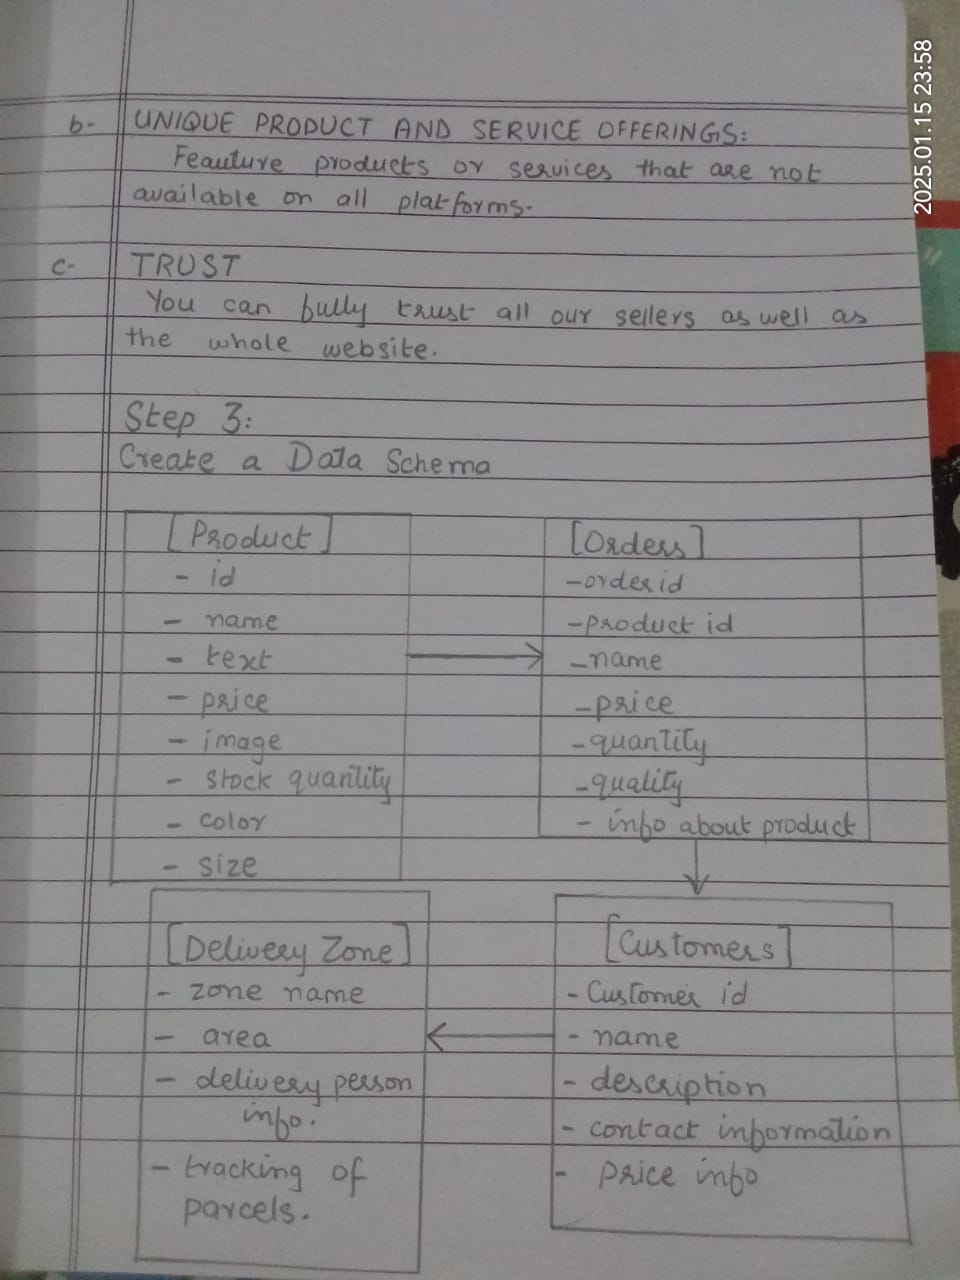 2025.01.15 23:58
b- UNIQUE PRODUCT AND SERVICE OFFERINGS:
Feauture products or services that are not
available on all platforms.
c- TRUST
You can fully trust all our sellers as well as
the whole website.
Step 3:
Create a Data Schema
[Product]
- id
- name
- text
- price
- image
- stock quantity
- color
- size
[Orders]
- order id
- product id
- name
- price
- quantity
- quality
- info about product
[Delivery Zone]
- zone name
- area
- delivery person
info.
- tracking of
parcels.
[Customers]
- Customer id
- name
- description
- contact information
- price info